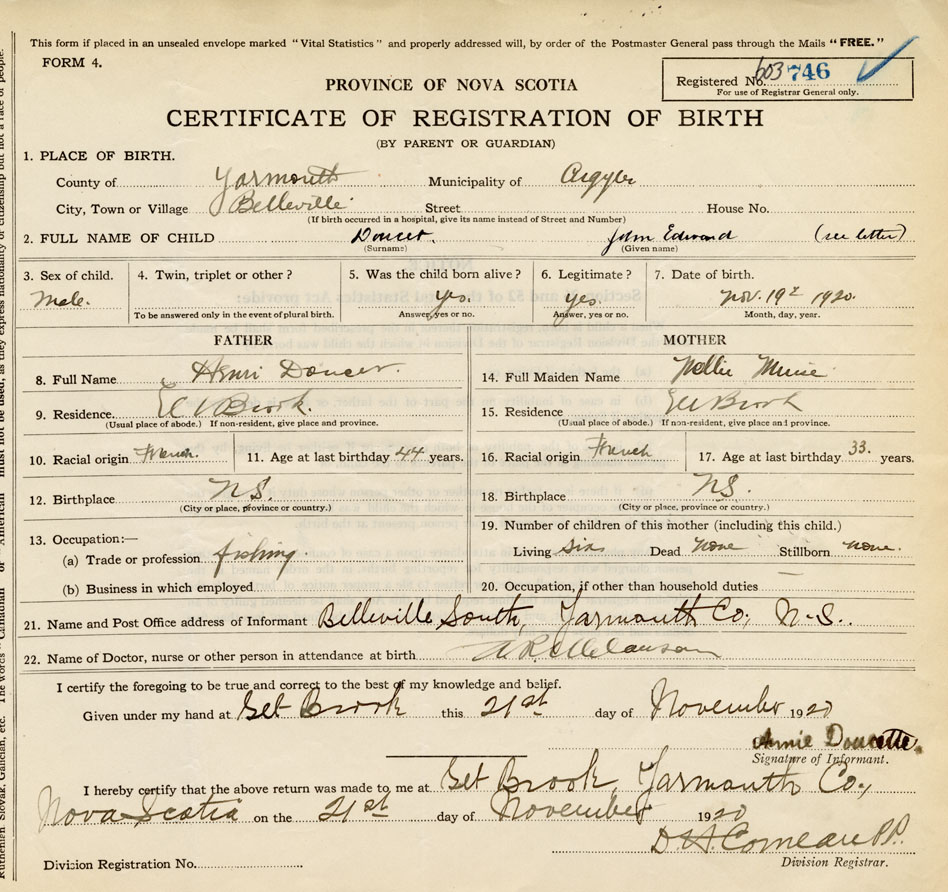 This form if placed in an unsealed envelope marked "Vital Statistics" and properly addressed will, by order of the Postmaster General pass through the Mails "FREE."
FORM 4.
Registered No. 603 746
For use of Registrar General only.
PROVINCE OF NOVA SCOTIA
CERTIFICATE OF REGISTRATION OF BIRTH
(BY PARENT OR GUARDIAN)
1. PLACE OF BIRTH.
County of Yarmouth Municipality of Argyle
City, Town or Village Belleville Street House No.
(If birth occurred in a hospital, give its name instead of Street and Number)
2. FULL NAME OF CHILD Doucet. John Edward (see letter)
(Surname) (Given name)
3. Sex of child. 4. Twin, triplet or other? 5. Was the child born alive? 6. Legitimate? 7. Date of birth.
Male. yes. yes. Nov. 19th 1920.
To be answered only in the event of plural birth. Answer, yes or no. Answer, yes or no. Month, day, year.
FATHER MOTHER
8. Full Name Henri Doucet. 14. Full Maiden Name Nellie
9. Residence. Brook. 15. Residence Brook
(Usual place of abode.) If non-resident, give place and province. (Usual place of abode.) If non-resident, give place and province.
10. Racial origin French. 11. Age at last birthday 44 years. 16. Racial origin French 17. Age at last birthday 33. years.
12. Birthplace N.S. 18. Birthplace N.S.
(City or place, province or country.) (City or place, province or country.)
13. Occupation:— 19. Number of children of this mother (including this child.)
(a) Trade or profession fishing. Living six Dead none Stillborn none.
(b) Business in which employed 20. Occupation, if other than household duties —
21. Name and Post Office address of Informant Belleville South, Yarmouth Co; N.S..
22. Name of Doctor, nurse or other person in attendance at birth Melanson
I certify the foregoing to be true and correct to the best of my knowledge and belief.
Given under my hand at Brook this 21st day of November 1920
Annie Doucette.
Signature of Informant.
I hereby certify that the above return was made to me at Brook, Yarmouth Co.,
Nova Scotia on the 21st day of November 1920
Comeau P.P.
Division Registration No. Division Registrar.